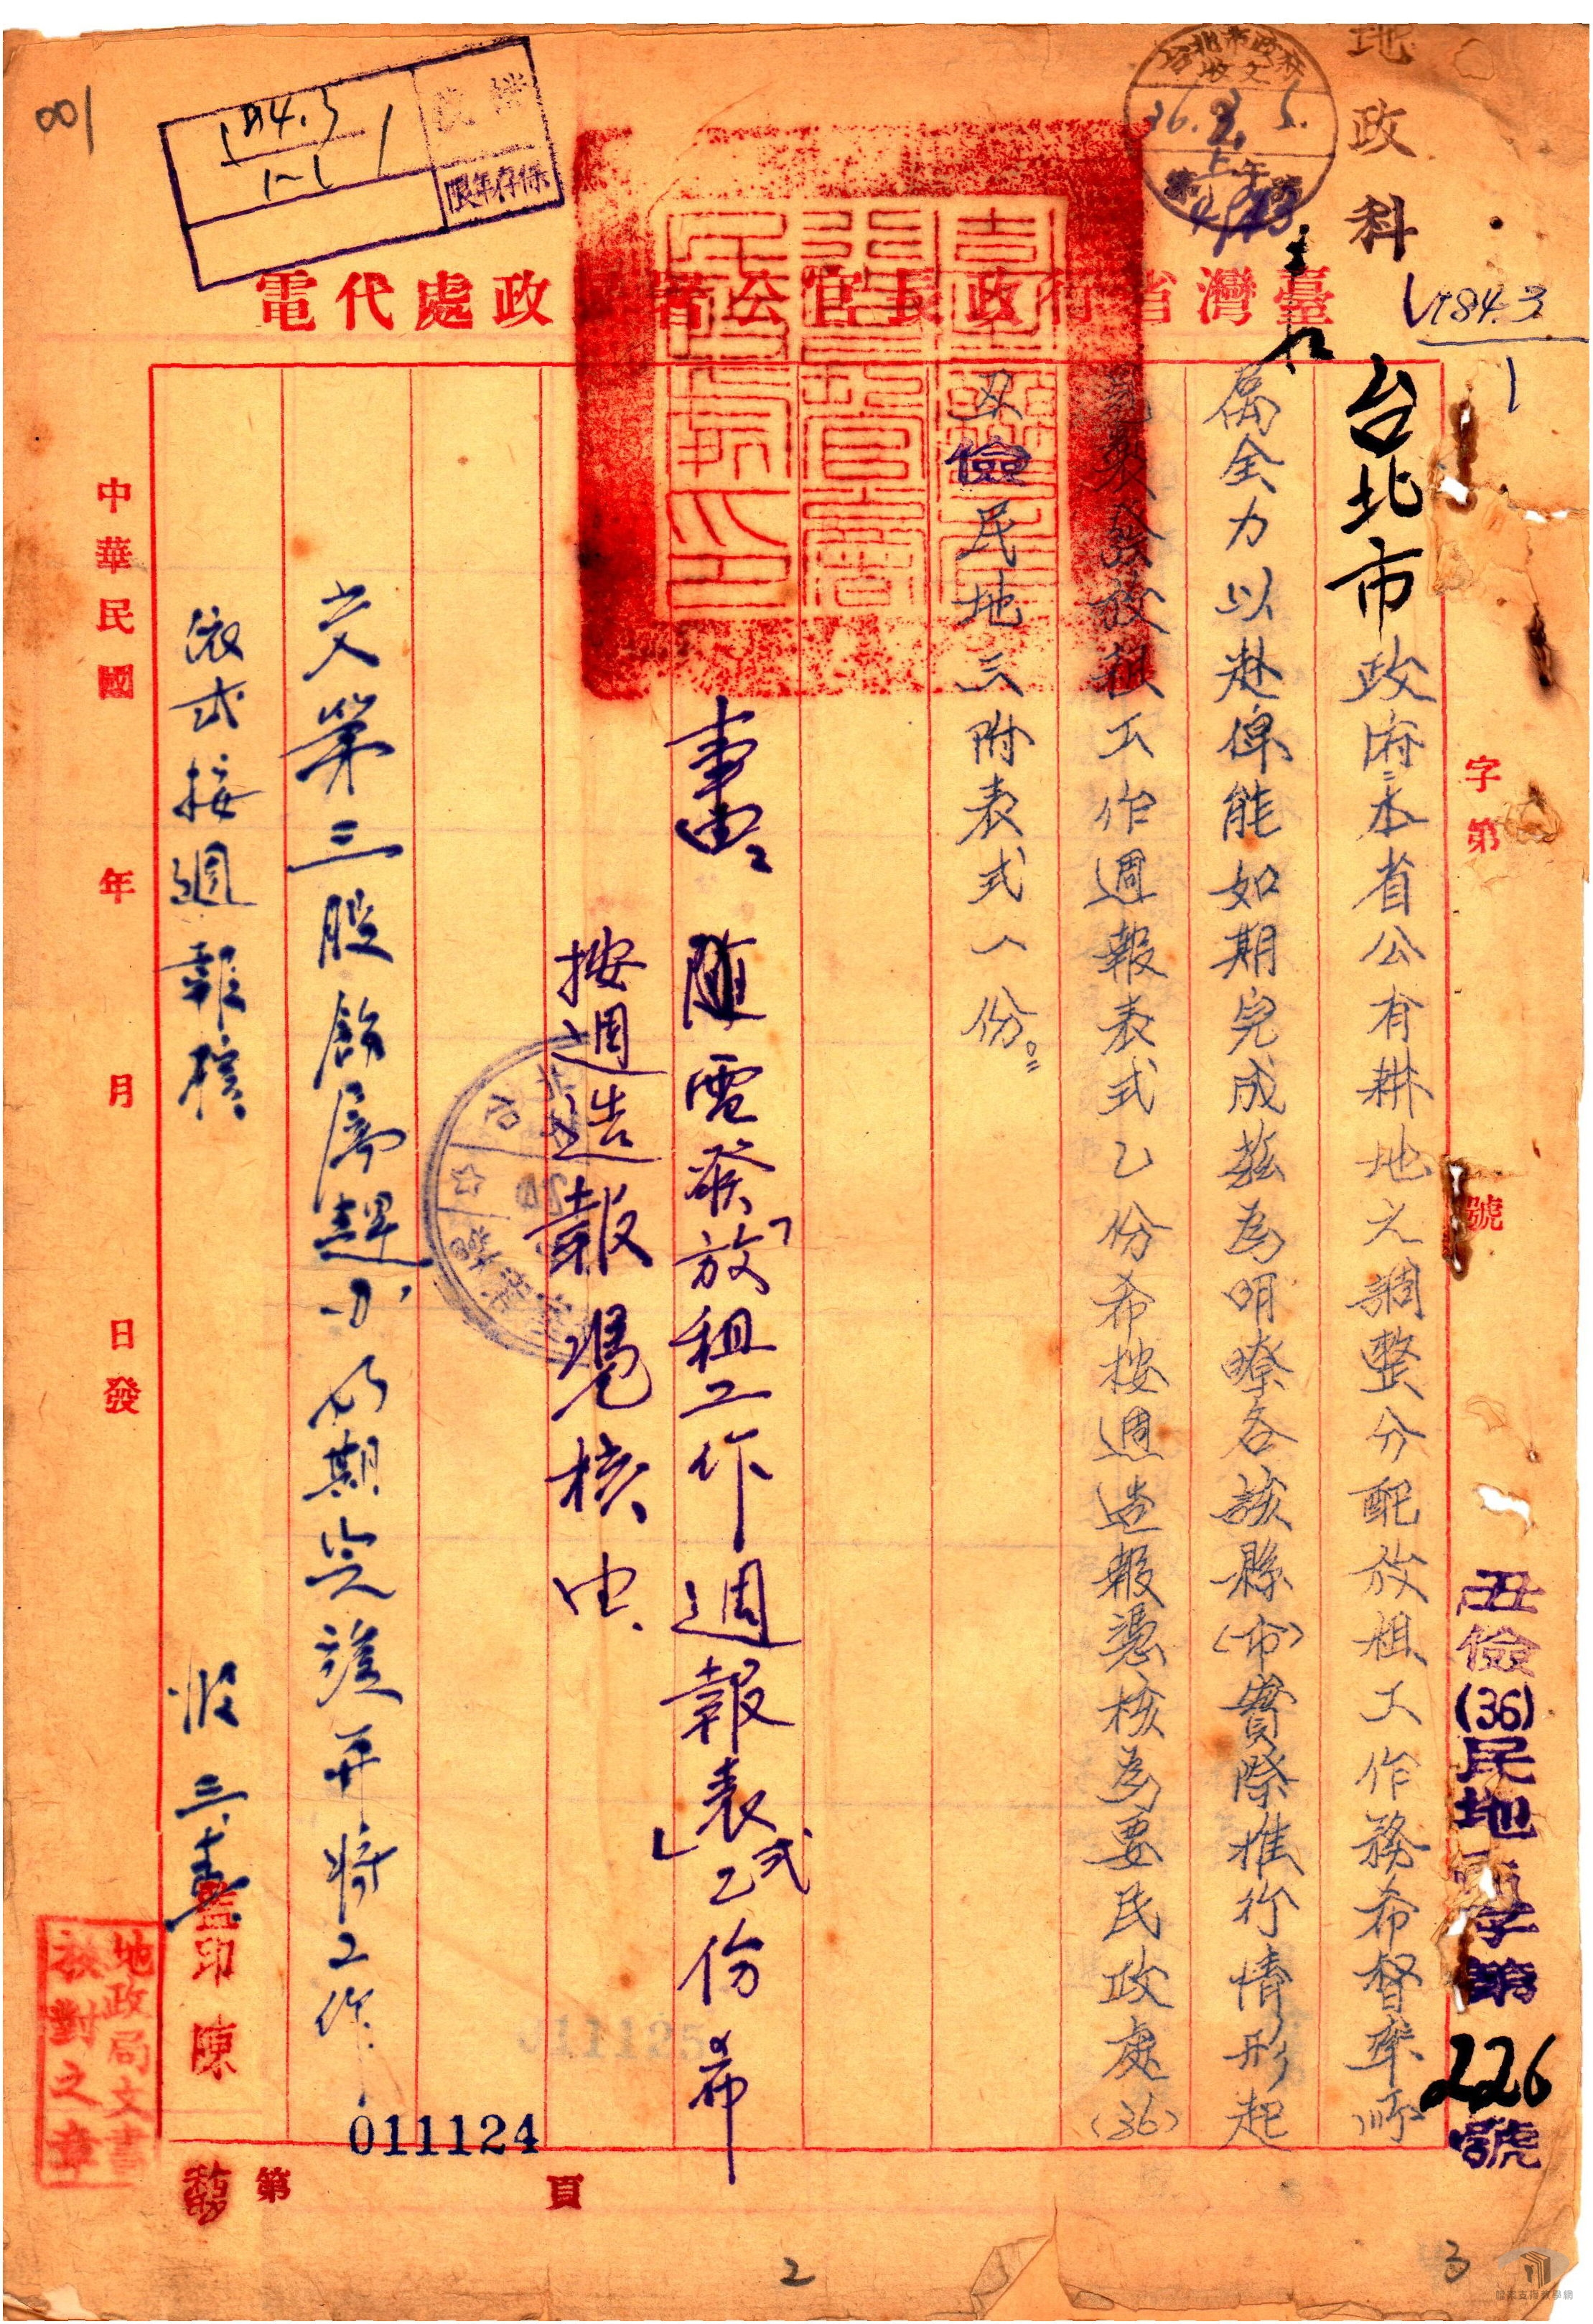 地政科
台北市政府
收文
36.3.5.
上午
184.3
1
001
檔號
184.3
1-1
1
保存年限
臺灣省行政長官公署民政處代電
字第 號
丑儉(36)民地 字第226號
台北市政府:本省公有耕地之調整分配放租工作務希督率所
屬全力以赴俾能如期完成茲為明瞭各該縣(市)實際推行情形起
見製發放租工作週報表式乙份希按週造報憑核為要民政處(36)
丑儉民地三附表式一份。
事由:隨電發「放租工作週報表式」乙份希
按週造報憑核由
交第三股飭屬趕办以期完竣并將工作
依式按週報核
股 三、
中華民國 年 月 日發
監印陳
地政局文書
校對之章
011124
第 頁
2
3